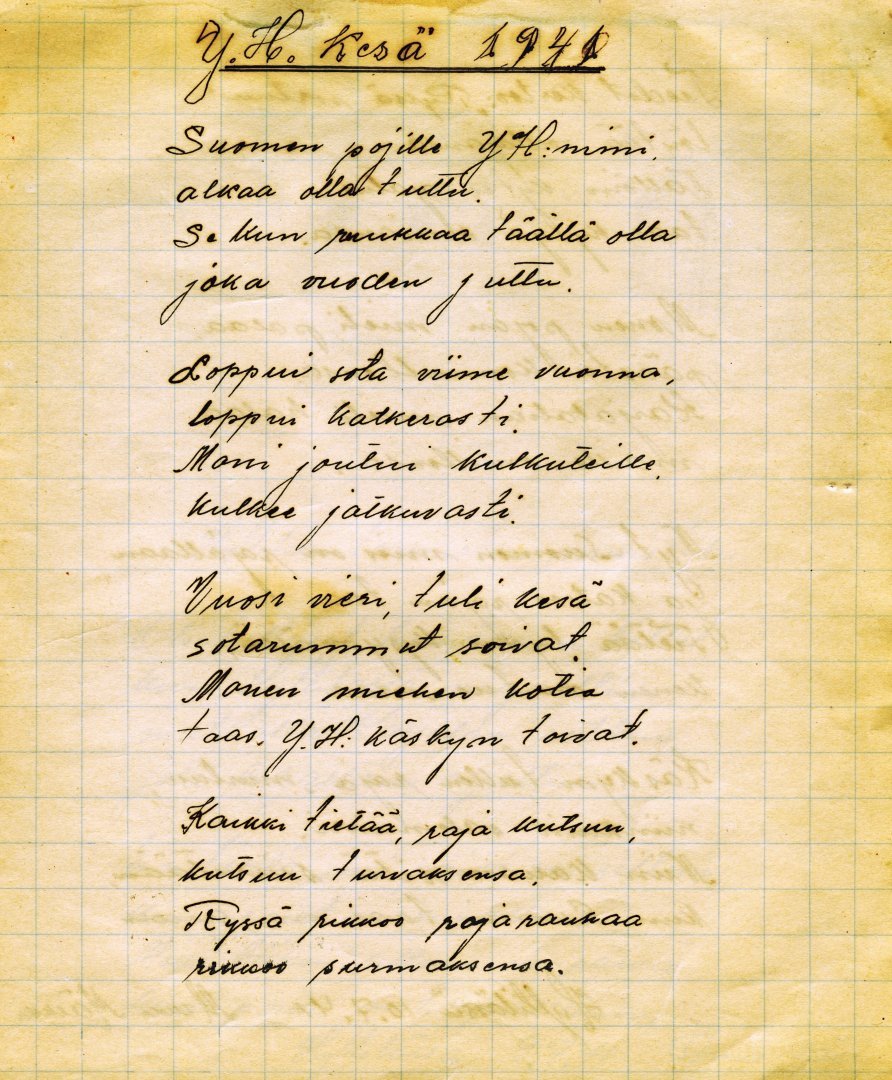 Y.H. Kesä 1941
Suomen pojille YH:nimi,
alkaa olla tuttu.
Se kun ruukkaa täällä olla
joka vuoden juttu.
Loppui sota viime vuonna,
loppui katkerasti.
Moni joutui kulkuteille,
kulkee jatkuvasti.
Vuosi vieri, tuli kesä
sotarummut soivat.
Monen miehen kotia
taas. Y.H: käskyn toivat.
Kaikki tietää, raja kutsuu,
kutsuu turvaksensa.
Ryssä rikkoo rajarauhaa
rikkoo surmaksensa.